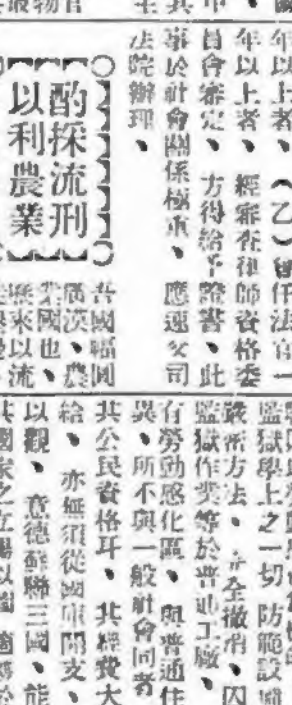 年以上者、（乙）曾任法官一
年以上者、經審查律師資格委
員會審定、方得給予證書、此
事於社會關係極重、應速交司
法院辦理、
酌採流刑
以利農業
吾國幅圓
廣漠、農
業國也、
歷來以
監獄學上之一切防範設備
戒密方法、全撤消、囚
監獄作業等於普通工廠、
有勞動感化區、與普通住
異、所不與一般社會同者
其公民資格耳、其經費大
給、亦無須從國庫開支、
以觀、意德蘇聯三國、能